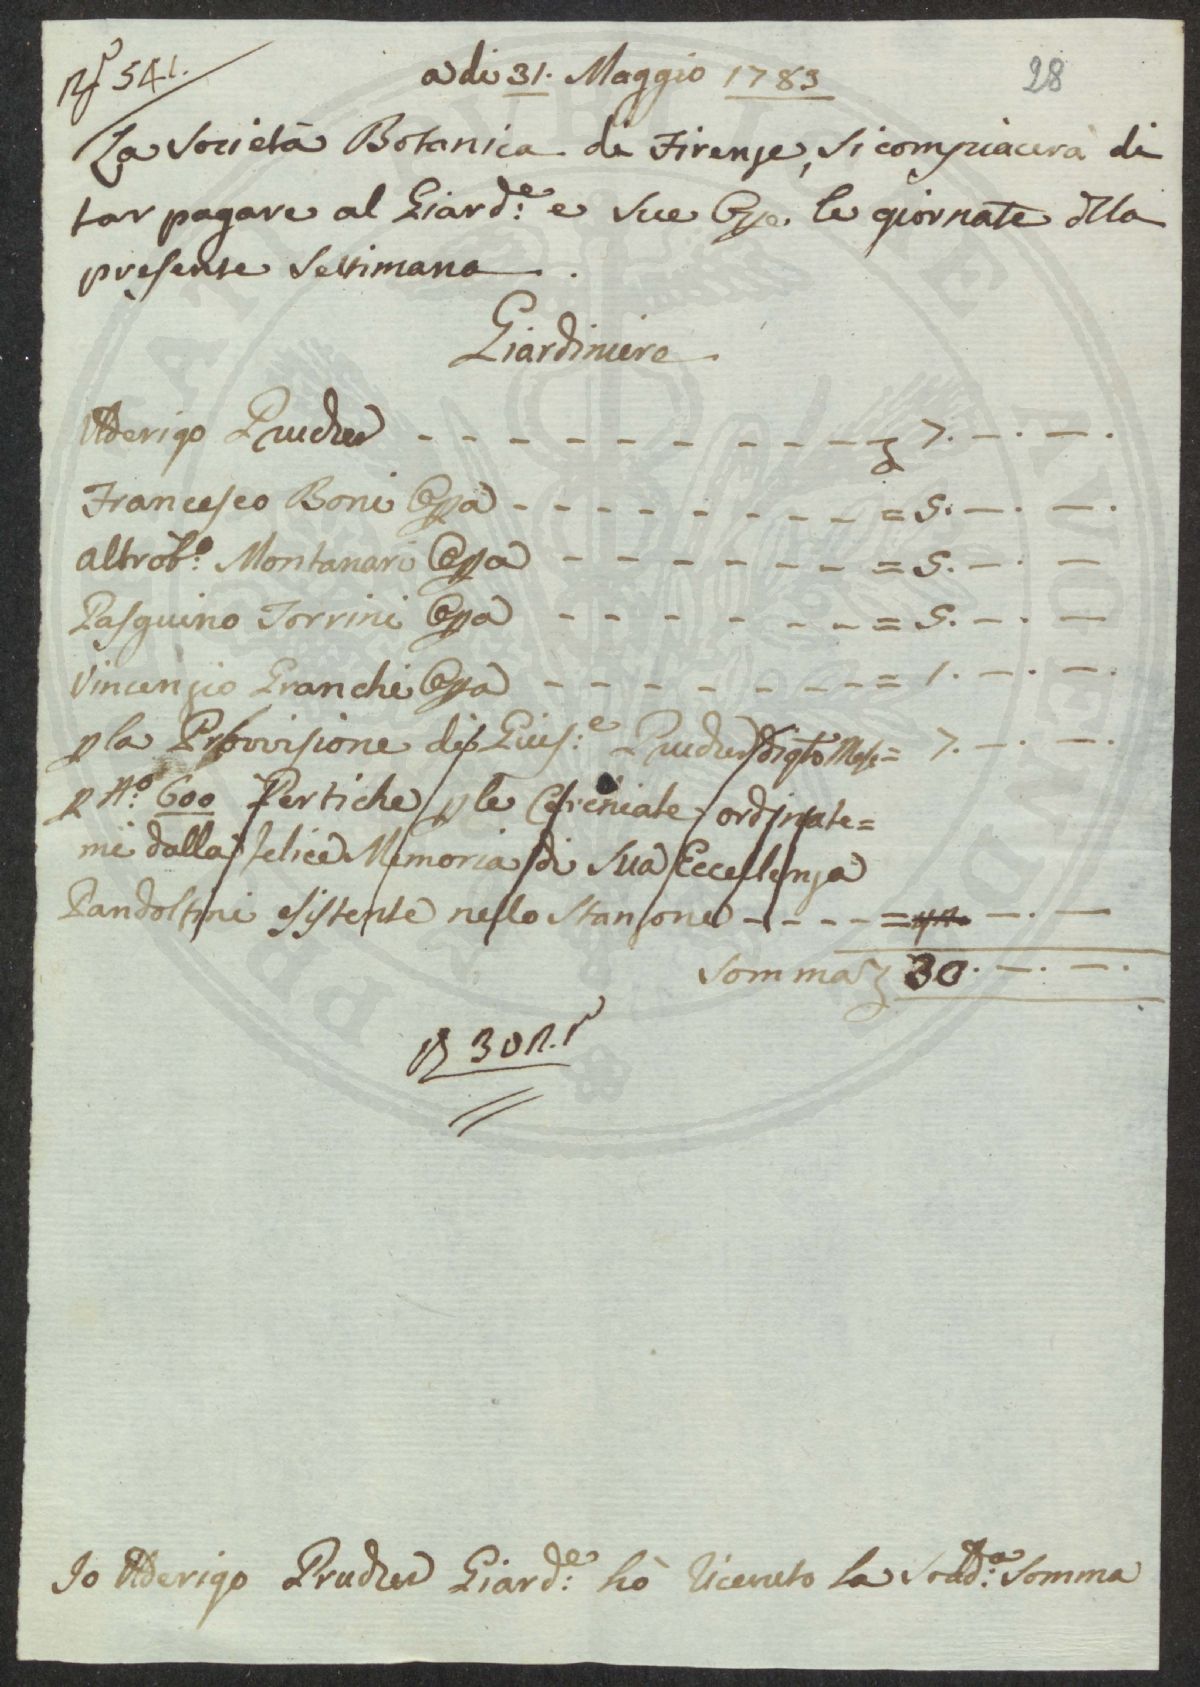 N.º 541.
a di 31. Maggio 1783
28
La Società Botanica di Firenze, si compiacerà di
far pagare al Giard.e e sue Opp.e le giornate dlla
presente Settimana.
Giardiniere
Aderigo Prucher 7. —. —.
Francesco Boni Oppa = 5. —. —.
altrob.o Montanari Oppa = 5. —. —
Pasquino Torrini Oppa = 5. —. —
Vincenzio Granchi Oppa = 1. —. —.
p la Provvisione di Gius.e Prucher di qto Mese = 7. —. —.
p N.o 600 Pertiche p le ordinate=
mi dalla felice Memoria di Sua Eccellenza
Pandolfini esistente nello Stanzone = —. —
Somma 30. —. —.
30
Io Aderigo Prucher Giard.e hò ricevuto la Sudd.a Somma